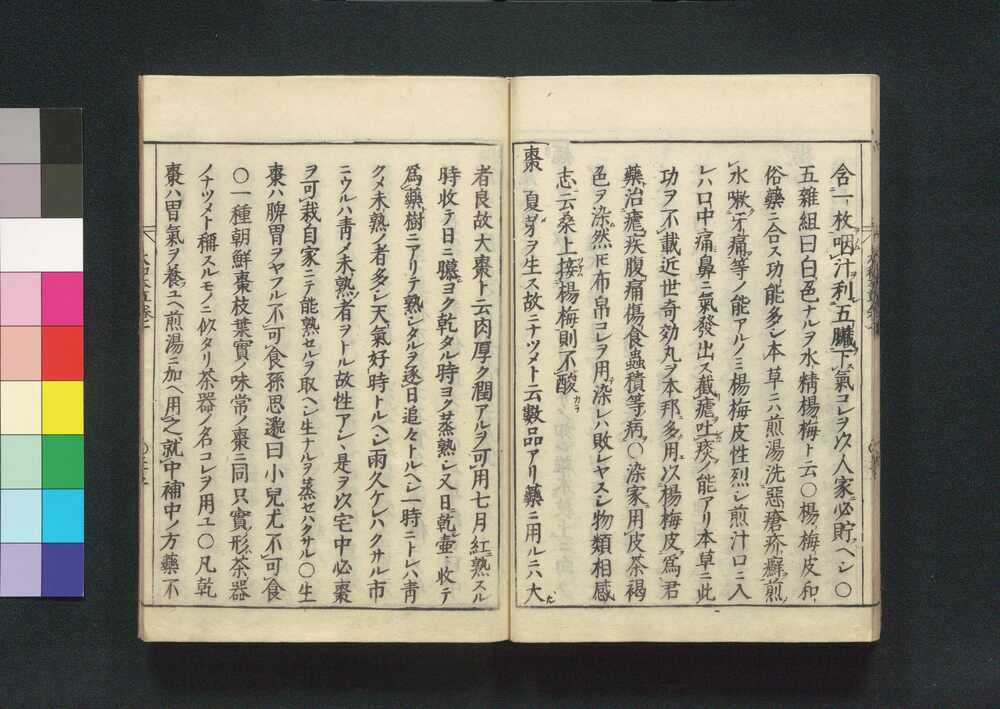 含一枚咽汁利五臟下氣コレヲ以人家必貯ヘシ〇
五雜組曰白色ナルヲ水精楊梅ト云〇楊梅皮和
俗藥ニ合ス功能多シ本草ニハ煎湯洗惡瘡疥癬煎
水嗽牙痛等ノ能アルノミ楊梅皮性烈シ煎汁口ニ入
レハ口中痛鼻ニ氣發出ス截瘧吐痰ノ能アリ本草ニ此
功ヲ不載近世奇効丸ヲ本邦多用以楊梅皮爲君
藥治瘧疾腹痛傷食蟲積等病〇染家用皮茶褐
色ヲ染然𪜈布帛コレヲ用染レハ敗レヤスシ物類相感
志云桑上接楊梅則不酸
棗 夏芽ヲ生ス故ニナツメト云數品アリ藥ニ用ルニハ大
者良故大棗ト云肉厚ク潤アルヲ可用七月紅熟スル
時收テ日ニ曝ヨク乾タル時ヨク蒸熟シ又日乾壷ニ收テ
爲藥樹ニアリテ熟シタルヲ逐日追々トルヘシ一時ニトレハ靑
クメ未熟ノ者多シ天氣好時トルヘシ雨久ケレハクサル市
ニウルハ靑メ未熟者ヲトル故性アシヽ是ヲ以宅中必棗
ヲ可栽自家ニテ能熟セルヲ取ヘシ生ナルヲ蒸セハクサル〇生
棗ハ脾胃ヲヤフル不可食孫思邈曰小兒尤不可食
〇一種朝鮮棗枝葉實ノ味常ノ棗ニ同只實ノ形茶器
ノナツメト稱スルモノニ似タリ茶器ノ名コレヲ用ユ〇凡乾
棗ハ胃氣ヲ養ユヘ煎湯ニ加ヘ用之就中補中ノ方藥不